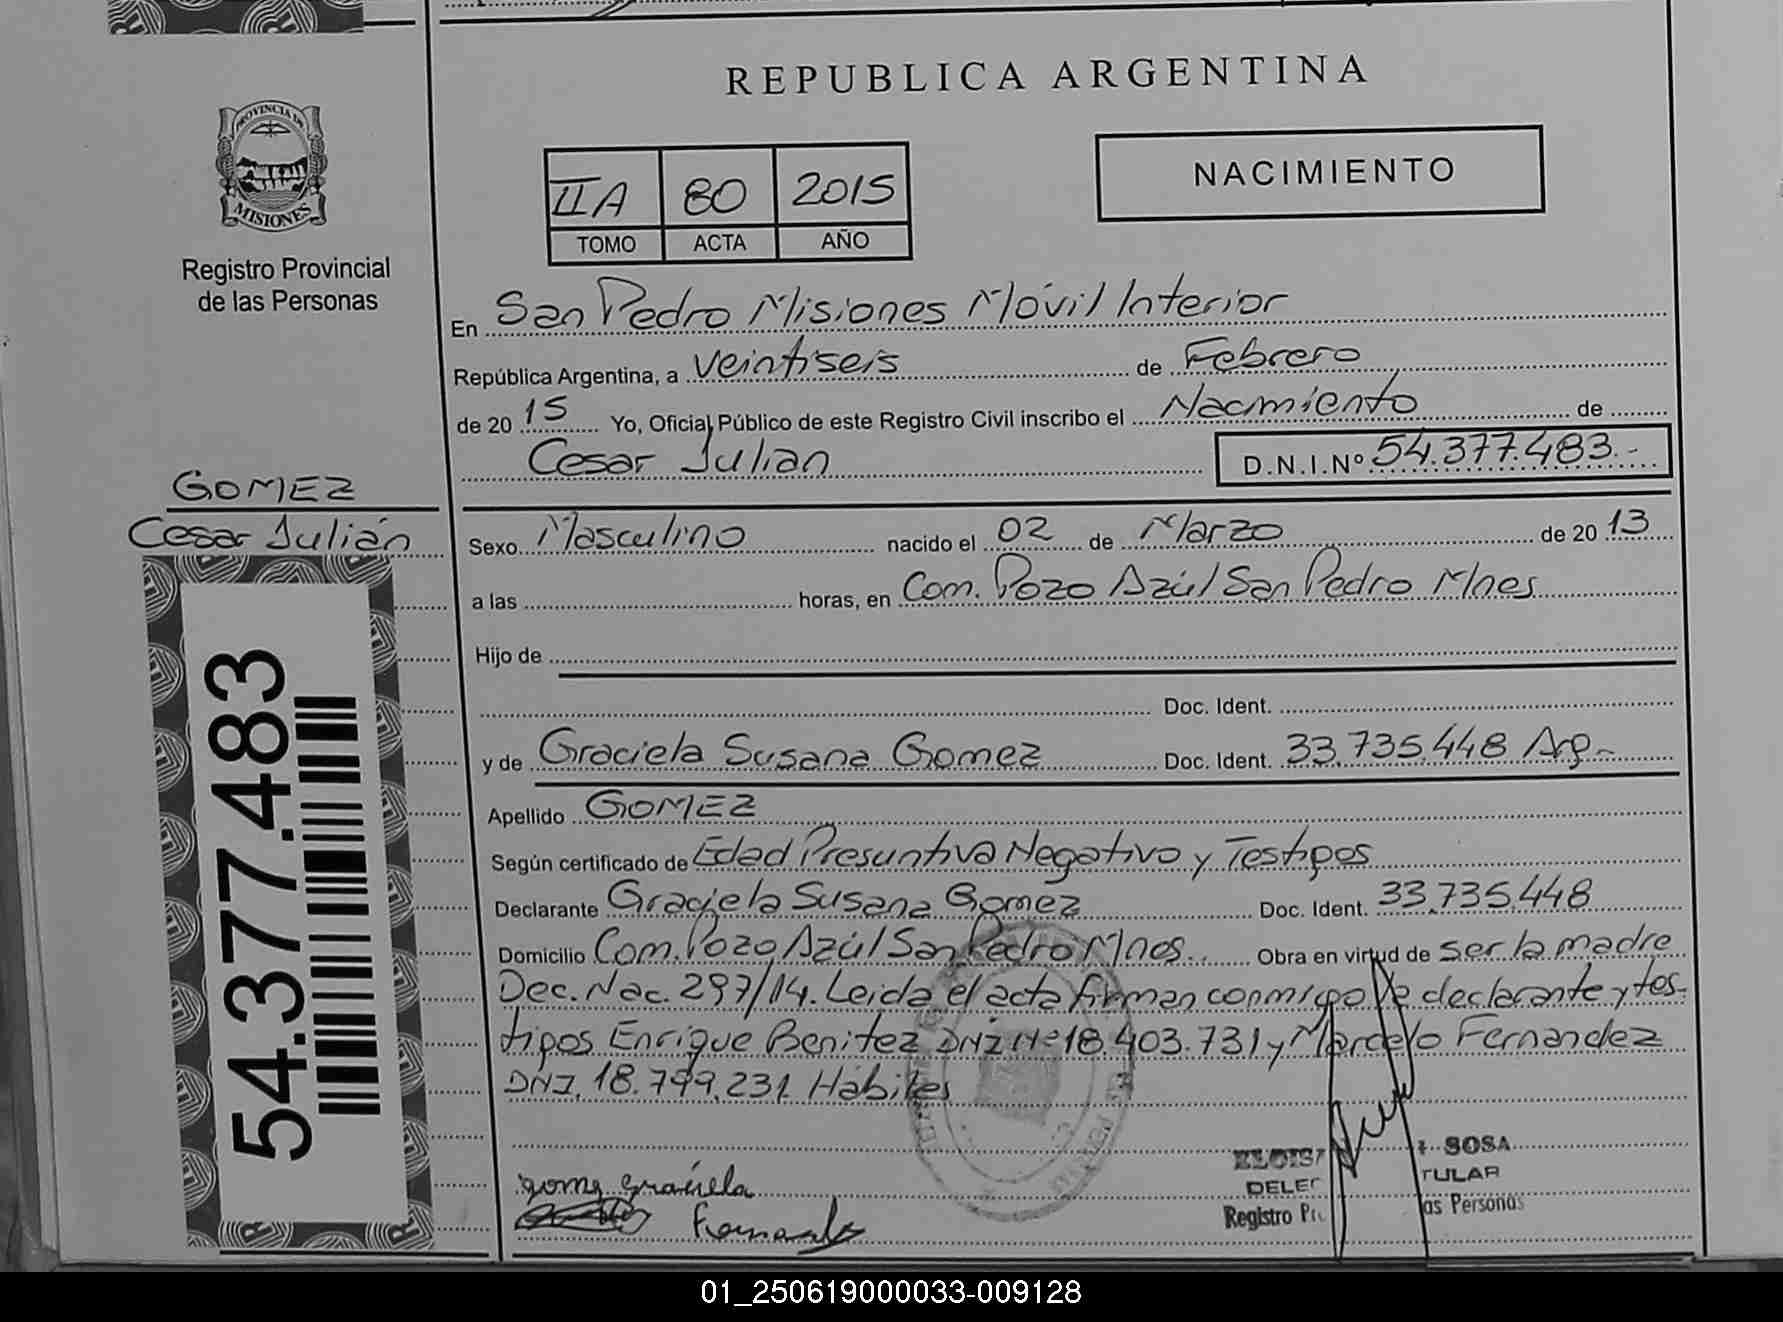 REPUBLICA ARGENTINA
PROVINCIA DE
MISIONES
Registro Provincial
de las Personas
IIA 80 2015
TOMO ACTA AÑO
NACIMIENTO
En San Pedro Misiones Móvil Interior
República Argentina, a veintiseis de Febrero
de 20 15 Yo, Oficial Público de este Registro Civil inscribo el Nacimiento de
Cesar Julian D.N.I.Nº 54.377.483.-
GOMEZ
Cesar Julián
Sexo Masculino nacido el 02 de Marzo de 20 13
a las horas, en Com. Pozo Azúl San Pedro Mnes
Hijo de
Doc. Ident.
y de Graciela Susana Gomez Doc. Ident. 33.735.448 Arg.-
Apellido GOMEZ
Según certificado de Edad Presuntiva Negativo y Testigos
Declarante Graciela Susana Gomez Doc. Ident. 33.735.448
Domicilio Com. Pozo Azúl San Pedro Mnes. Obra en virtud de ser la madre
Dec. Nac. 297/14. Leida el acta firman conmigo la declarante y tes-
tigos Enrique Benitez DNI Nº 18.403.731 y Marcelo Fernandez
DNI. 18.799.231. Hábiles
54.377.483
gomez graciela
Fernandez
SOSA
Registro
as Personas
01_250619000033-009128